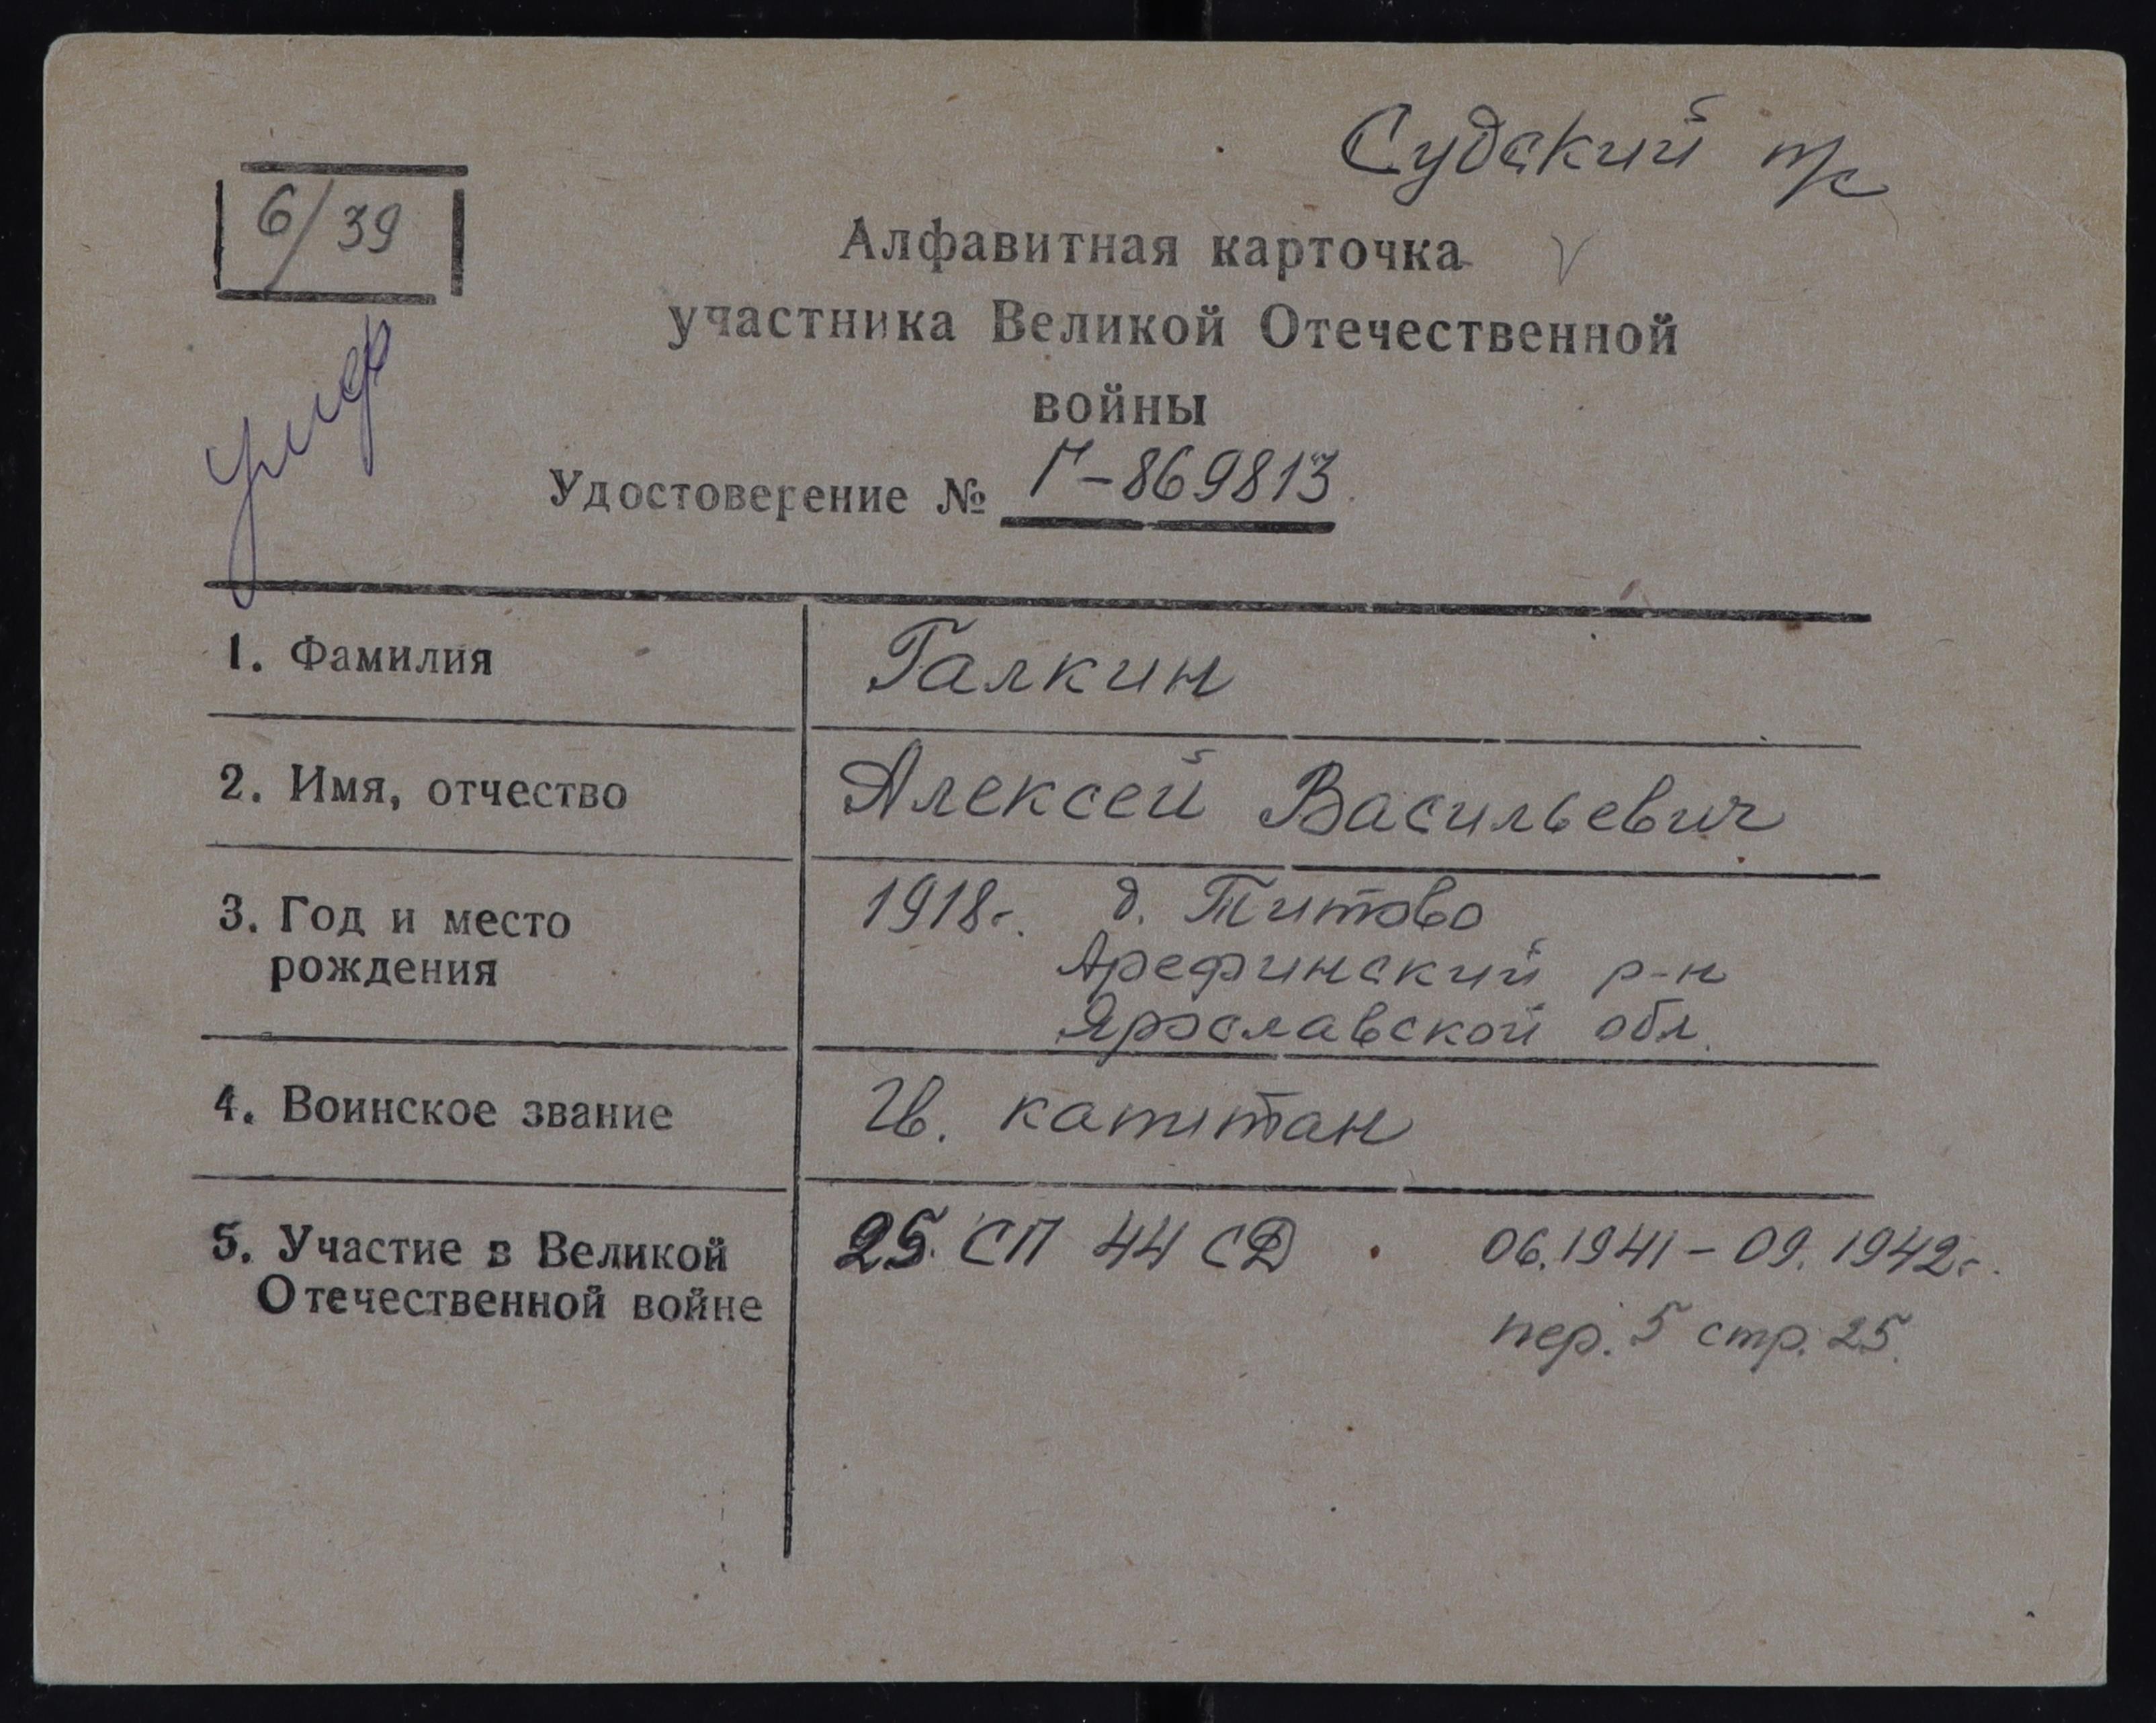 Судский п/с
6/39
Алфавитная карточка
участника Великой Отечественной
войны
Удостоверение № Г-869813.
1. Фамилия Галкин
2. Имя, отчество Алексей Васильевич
3. Год и место 1918г. д. Титово
рождения Арефинский р-н
Ярославской обл.
4. Воинское звание Гв. капитан
5. Участие в Великой 25 СП 44 СД 06.1941 - 09.1942г.
Отечественной войне пер. 5 стр. 25.